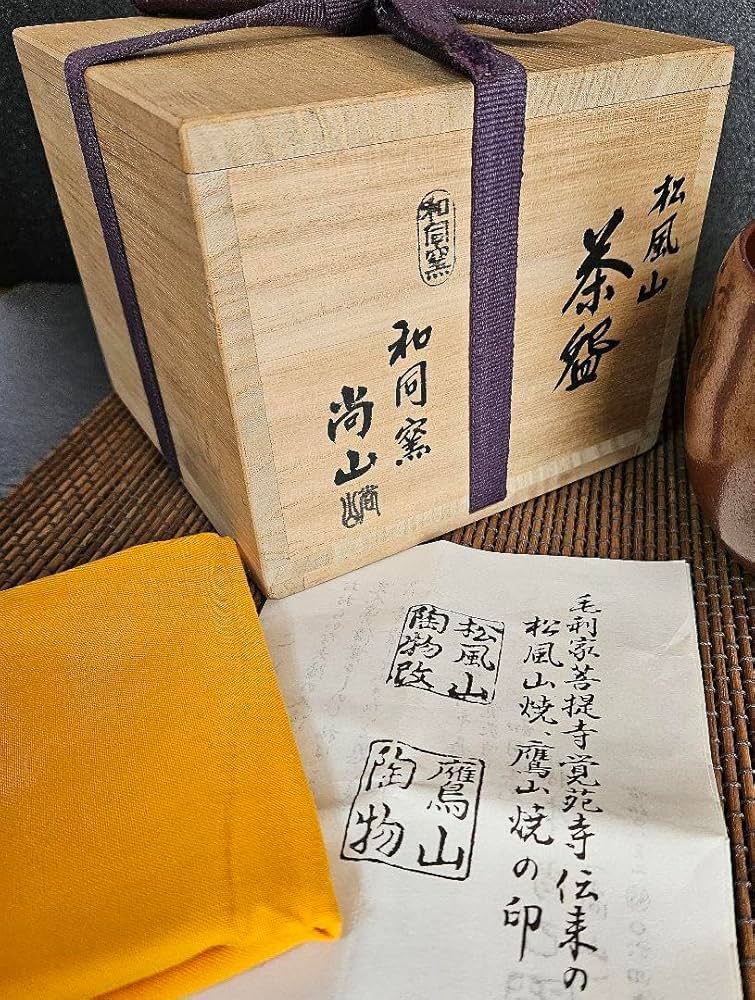 松風山
茶盌
和同窯
和同窯
尚山
毛利家菩提寺覚苑寺伝来の
松風山焼、鷹山焼の印
松風山
陶物改
鷹山
陶物